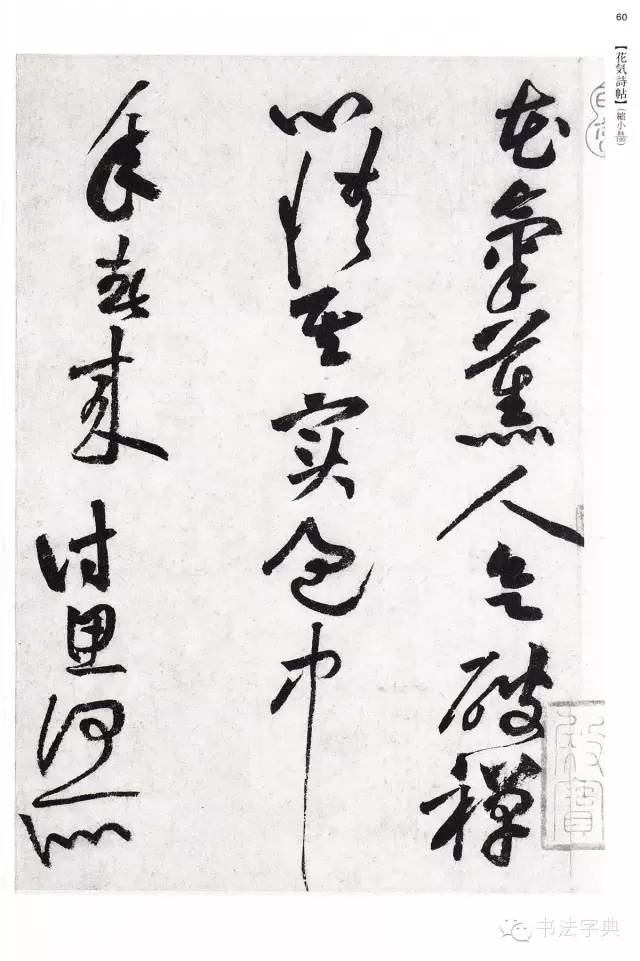 60
【花気詩帖】(縮小
花氣薰人欲破禪
心情其實過中
年春來詩思何所似
书法字典